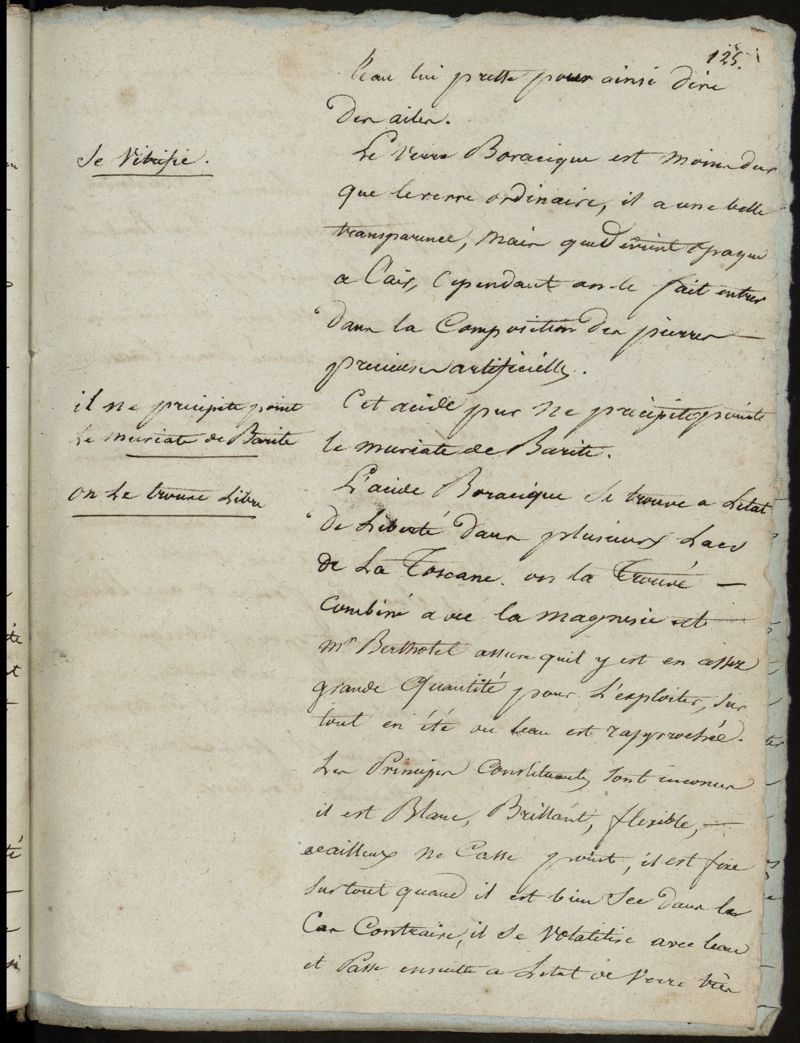 125.
l'eau lui prette pour ainsi dire
des ailes.
Se Vitrifie.
Le verre Boracique est moins dur
que le verre ordinaire, il a une belle
transparence, mais qui devient opaque
a l'air, cependant on le fait entrer
dans la Composition des pierres
precieuses artificielles.
il ne précipite point
Le muriate de Barite
Cet acide pur ne précipite point
le muriate de Barite.
on Le trouve Libre
L'acide Boracique se trouve a Letat
de Liberté dans plusieurs Lacs
de La Toscane. on la Trouvé —
Combiné avec la magnesie et
mr Berthotel assure quil y est en assez
grande Quantité pour L'exploiter, sur
tout en été ou leau est rapprochée.
Les Principes Constituants sont inconus
il est Blanc, Brillant, flexible, —
ecailleux ne Casse point, il est fixe
surtout quand il est bien Sec Dans le
Cas Contraire, il se volatilise avec leau
et Passe ensuitte a Letat de Verre très